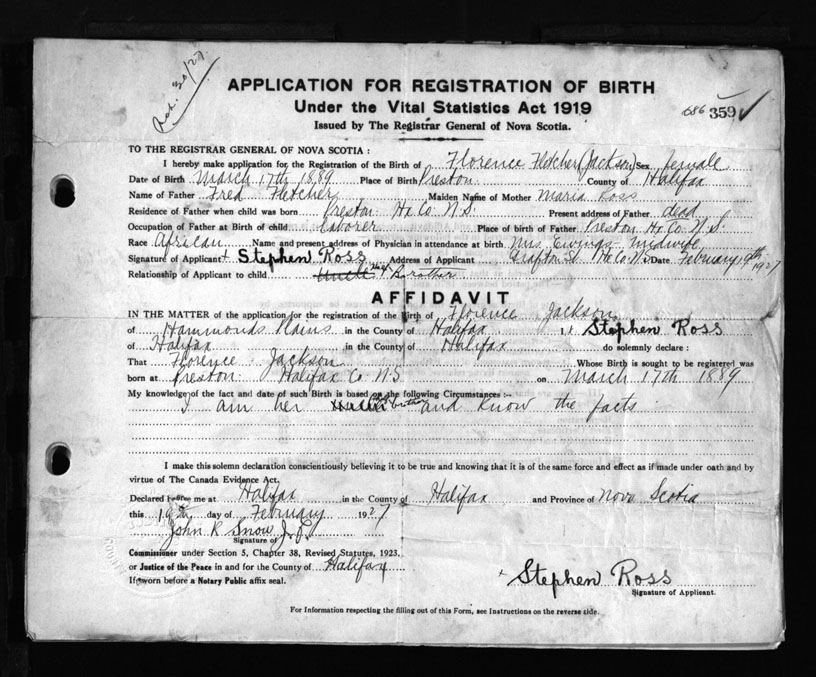 Rec. 30/27.
APPLICATION FOR REGISTRATION OF BIRTH
Under the Vital Statistics Act 1919
686 359
Issued by The Registrar General of Nova Scotia.
TO THE REGISTRAR GENERAL OF NOVA SCOTIA :
I hereby make application for the Registration of the Birth of Florence Fletcher (Jackson) Sex female
Date of Birth March 17th 1889 Place of Birth Preston County of Halifax
Name of Father Fred Fletcher Maiden Name of Mother Maria Ross
Residence of Father when child was born Preston Hx Co. N.S. Present address of Father dead
Occupation of Father at Birth of child Laborer Place of birth of Father Preston Hx Co. N.S.
Race African Name and present address of Physician in attendance at birth Mrs. Ewings Midwife
Signature of Applicant Stephen Ross Address of Applicant Grafton St Hx Co. N.S. Date February 19th 1927
Relationship of Applicant to child Uncle Half Brother
AFFIDAVIT
IN THE MATTER of the application for the registration of the Birth of Florence Jackson
of Hammonds Plains in the County of Halifax I, Stephen Ross
of Halifax in the County of Halifax do solemnly declare :
That Florence Jackson Whose Birth is sought to be registered was
born at Preston Halifax Co. N.S on March 17th 1889
My knowledge of the fact and date of such Birth is based on the following Circumstances :-
I am her Uncle half brother and know the facts
I make this solemn declaration conscientiously believing it to be true and knowing that it is of the same force and effect as if made under oath and by
virtue of The Canada Evidence Act.
Declared before me at Halifax in the County of Halifax and Province of Nova Scotia
this 19th day of February 1927
John R Snow J.P.
Signature of
Commissioner under Section 5, Chapter 38, Revised Statutes, 1923,
or Justice of the Peace in and for the County of Halifax
If sworn before a Notary Public affix seal.
x Stephen Ross
Signature of Applicant.
For Information respecting the filling out of this Form, see Instructions on the reverse side.